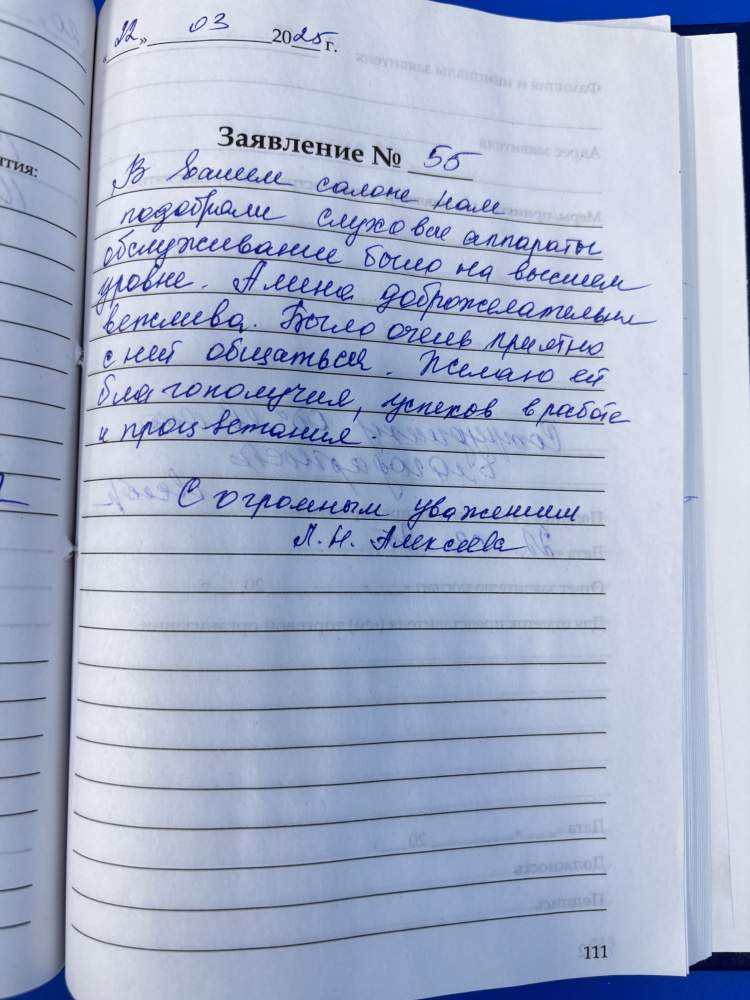 «22» 03 2025 г.
Заявление № 55
В Вашем салоне нам
подобрали слуховые аппараты
обслуживание было на высшем
уровне. Амина доброжелательн
вежлива. Было очень приятно
с ней общаться. Желаю ей
благополучия, успехов в работе
и процветания.
С огромным уважением
Л. Н. Алексеева
111
ятия: